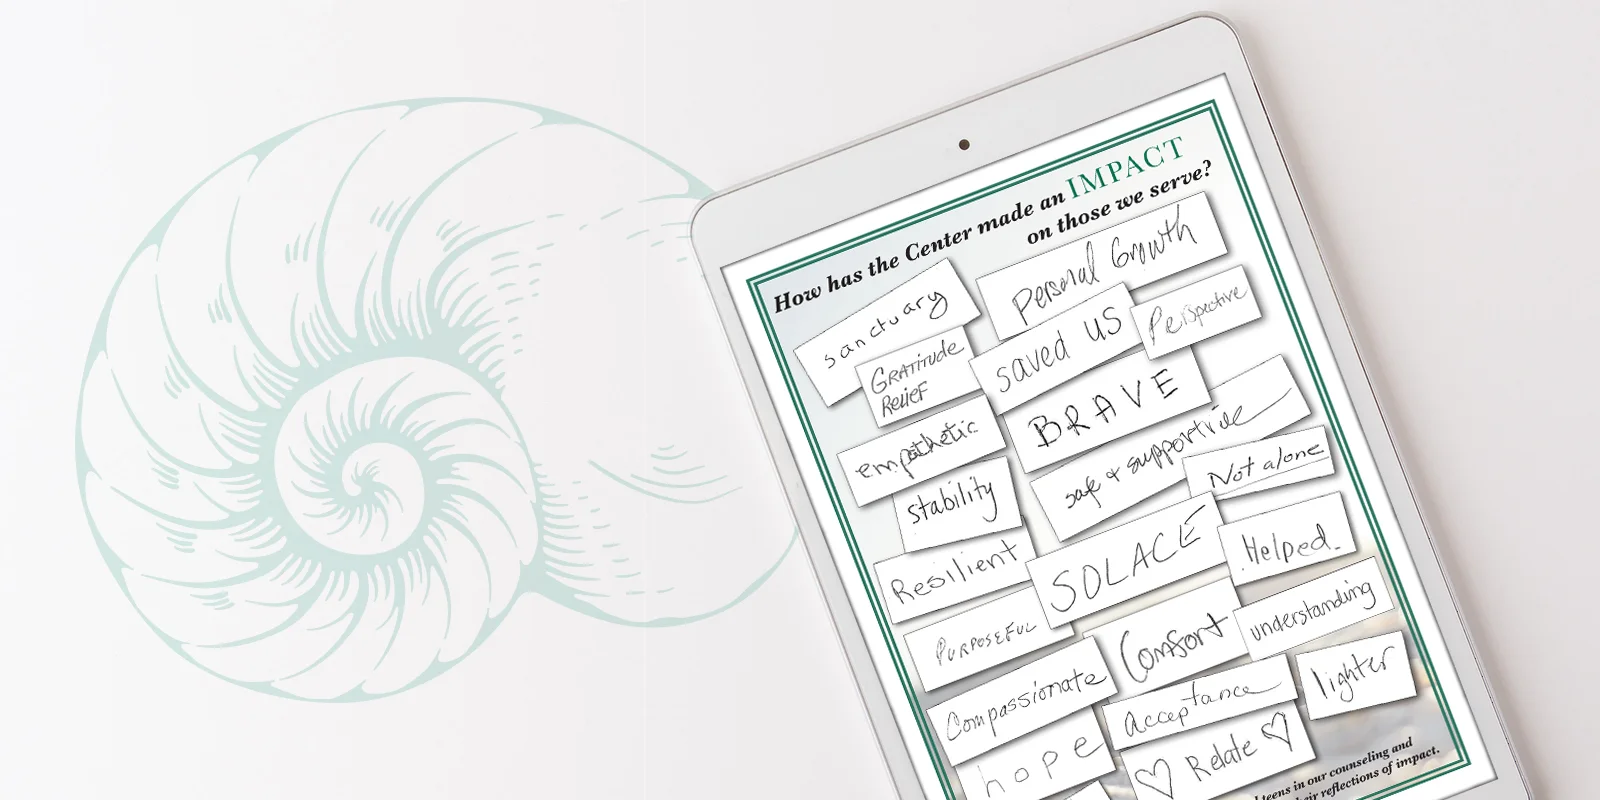 How has the Center made an IMPACT
on those we serve?
Personal Growth
sanctuary
Perspective
saved us
GRATITUDE
RELIEF
BRAVE
empathetic
safe & supportive
Not alone
stability
SOLACE
Helped
Resilient
understanding
PURPOSEFUL
Comfort
lighter
Compassionate
Acceptance
hope
♡ Relate ♡
teens in our counseling and
reflections of impact.